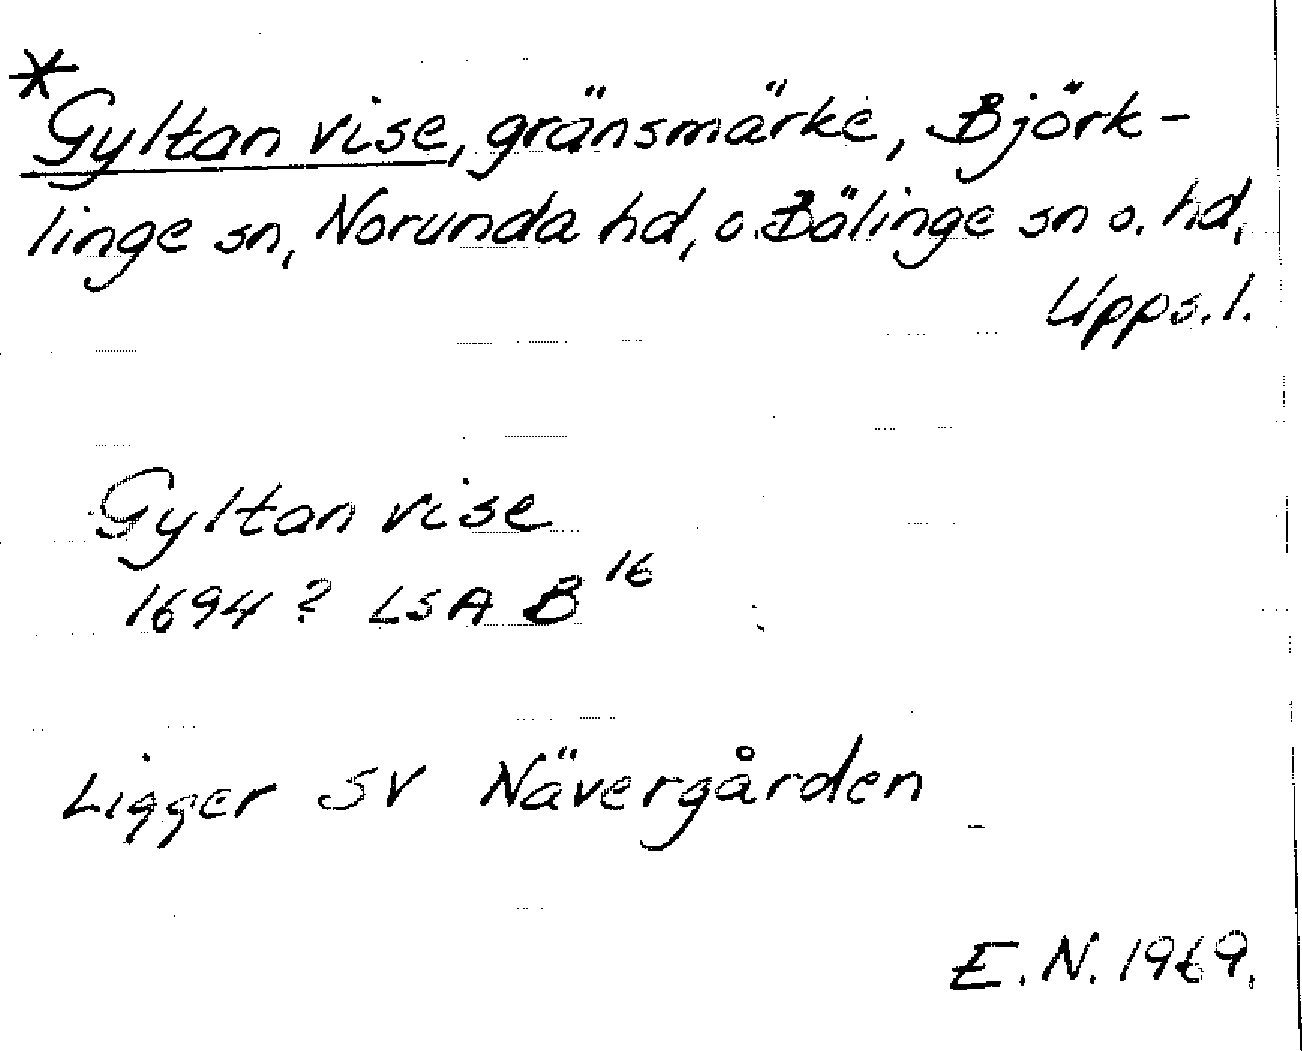 *Gyltan vise, gränsmärke, Björk-
linge sn, Norunda hd, o. Bälinge sn o. hd,
Upps. l.
Gyltan vise
1694? LSA B 16
Ligger SV Nävergården
E. N. 1969.